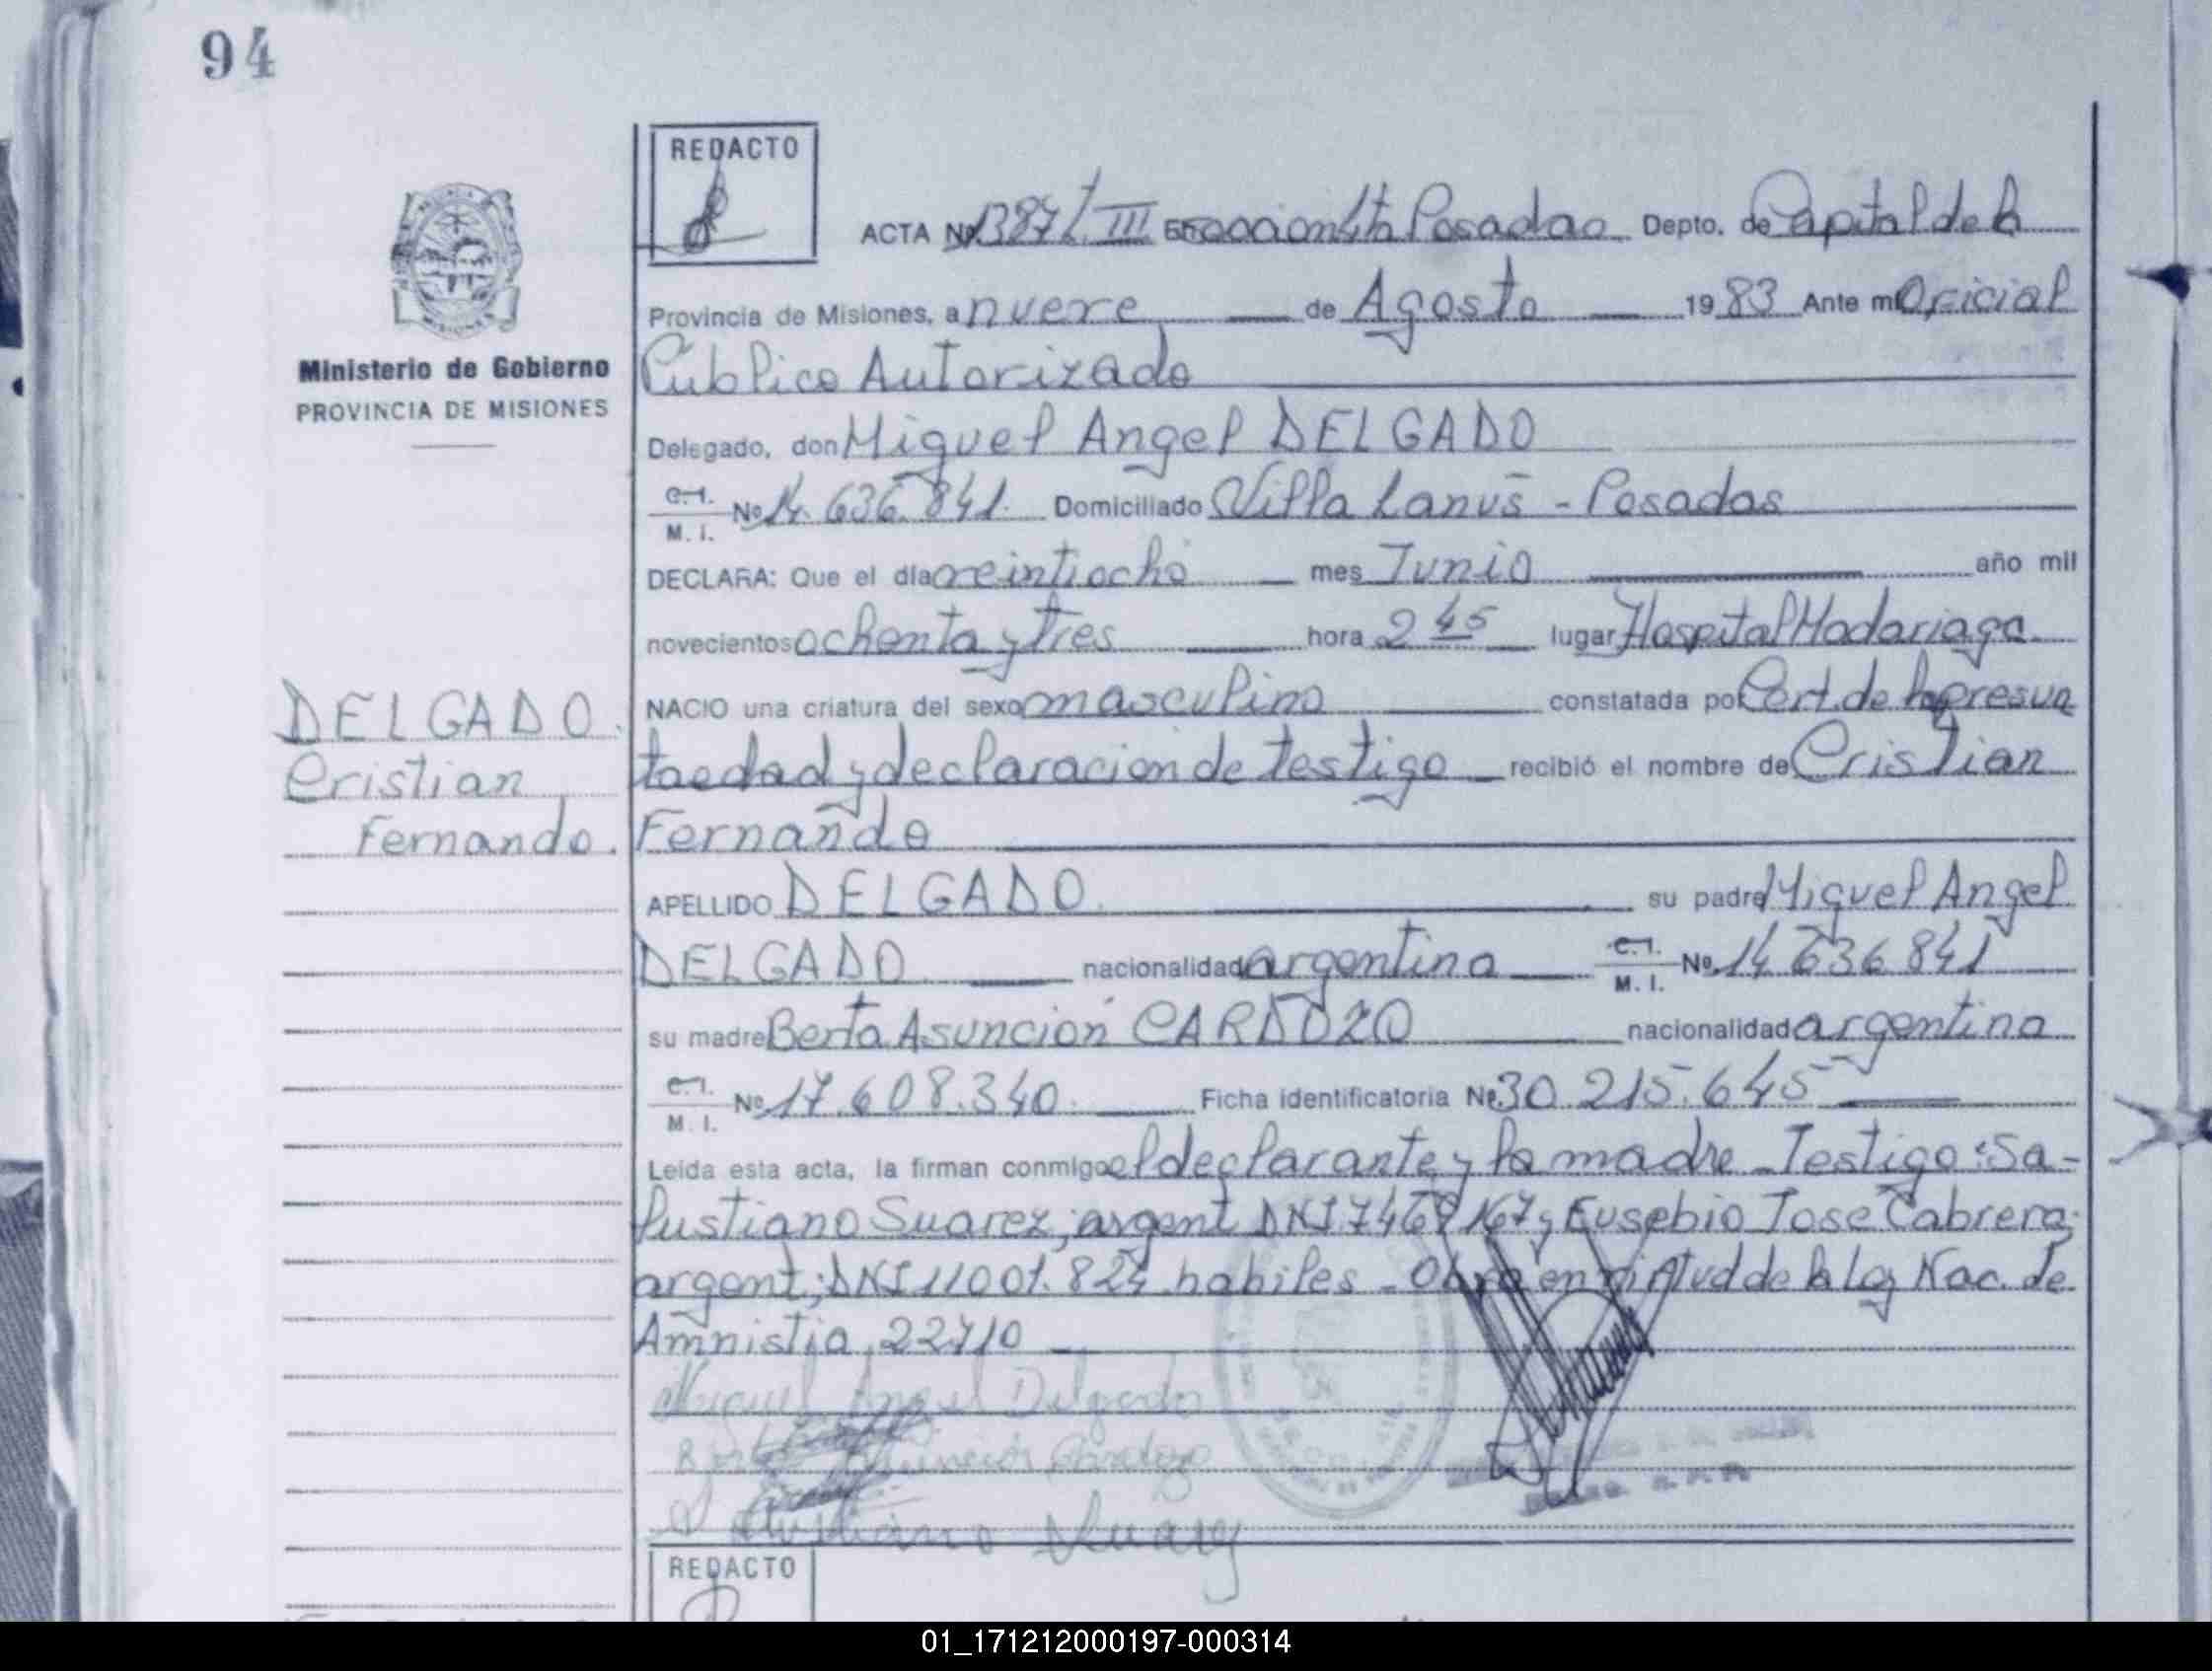 94
REDACTO
ACTA Nº 1387/ III Sección 4ta Posadas Depto. de Capital de la
Provincia de Misiones, a nueve de Agosto 1983 Ante mi Oficial
Público Autorizado
Ministerio de Gobierno
PROVINCIA DE MISIONES
Delegado, don Miguel Angel DELGADO
C.I. M. I. Nº 14.636.841. Domiciliado Villa Lanús - Posadas
DECLARA: Que el día veintiocho mes Junio año mil
novecientos ochenta y tres hora 2 45 lugar Hospital Madariaga
NACIO una criatura del sexo masculino constatada por Cert. de la presun
DELGADO.
Cristian
Fernando.
ta edad y declaracion de testigo recibió el nombre de Cristian
Fernando
APELLIDO DELGADO. su padre Miguel Angel
DELGADO nacionalidad argentina C.I. M. I. Nº 14 636 841
su madre Berta Asunción CARDOZO nacionalidad argentina
C.I. M. I. Nº 17.608.340. Ficha identificatoria Nº 30 215.645
Leída esta acta, la firman conmigo el declarante y la madre - Testigo: Sa-
lustiano Suarez, argent DNI 7469167 y Eusebio Jose Cabrera;
argent; DNI 11001.824 habiles - Obra en virtud de la Ley Nac. de
Amnistia 22710
Miguel Angel Delgado
Berta Asunción Cardozo
Salustiano Suarez
REDACTO
01_171212000197-000314